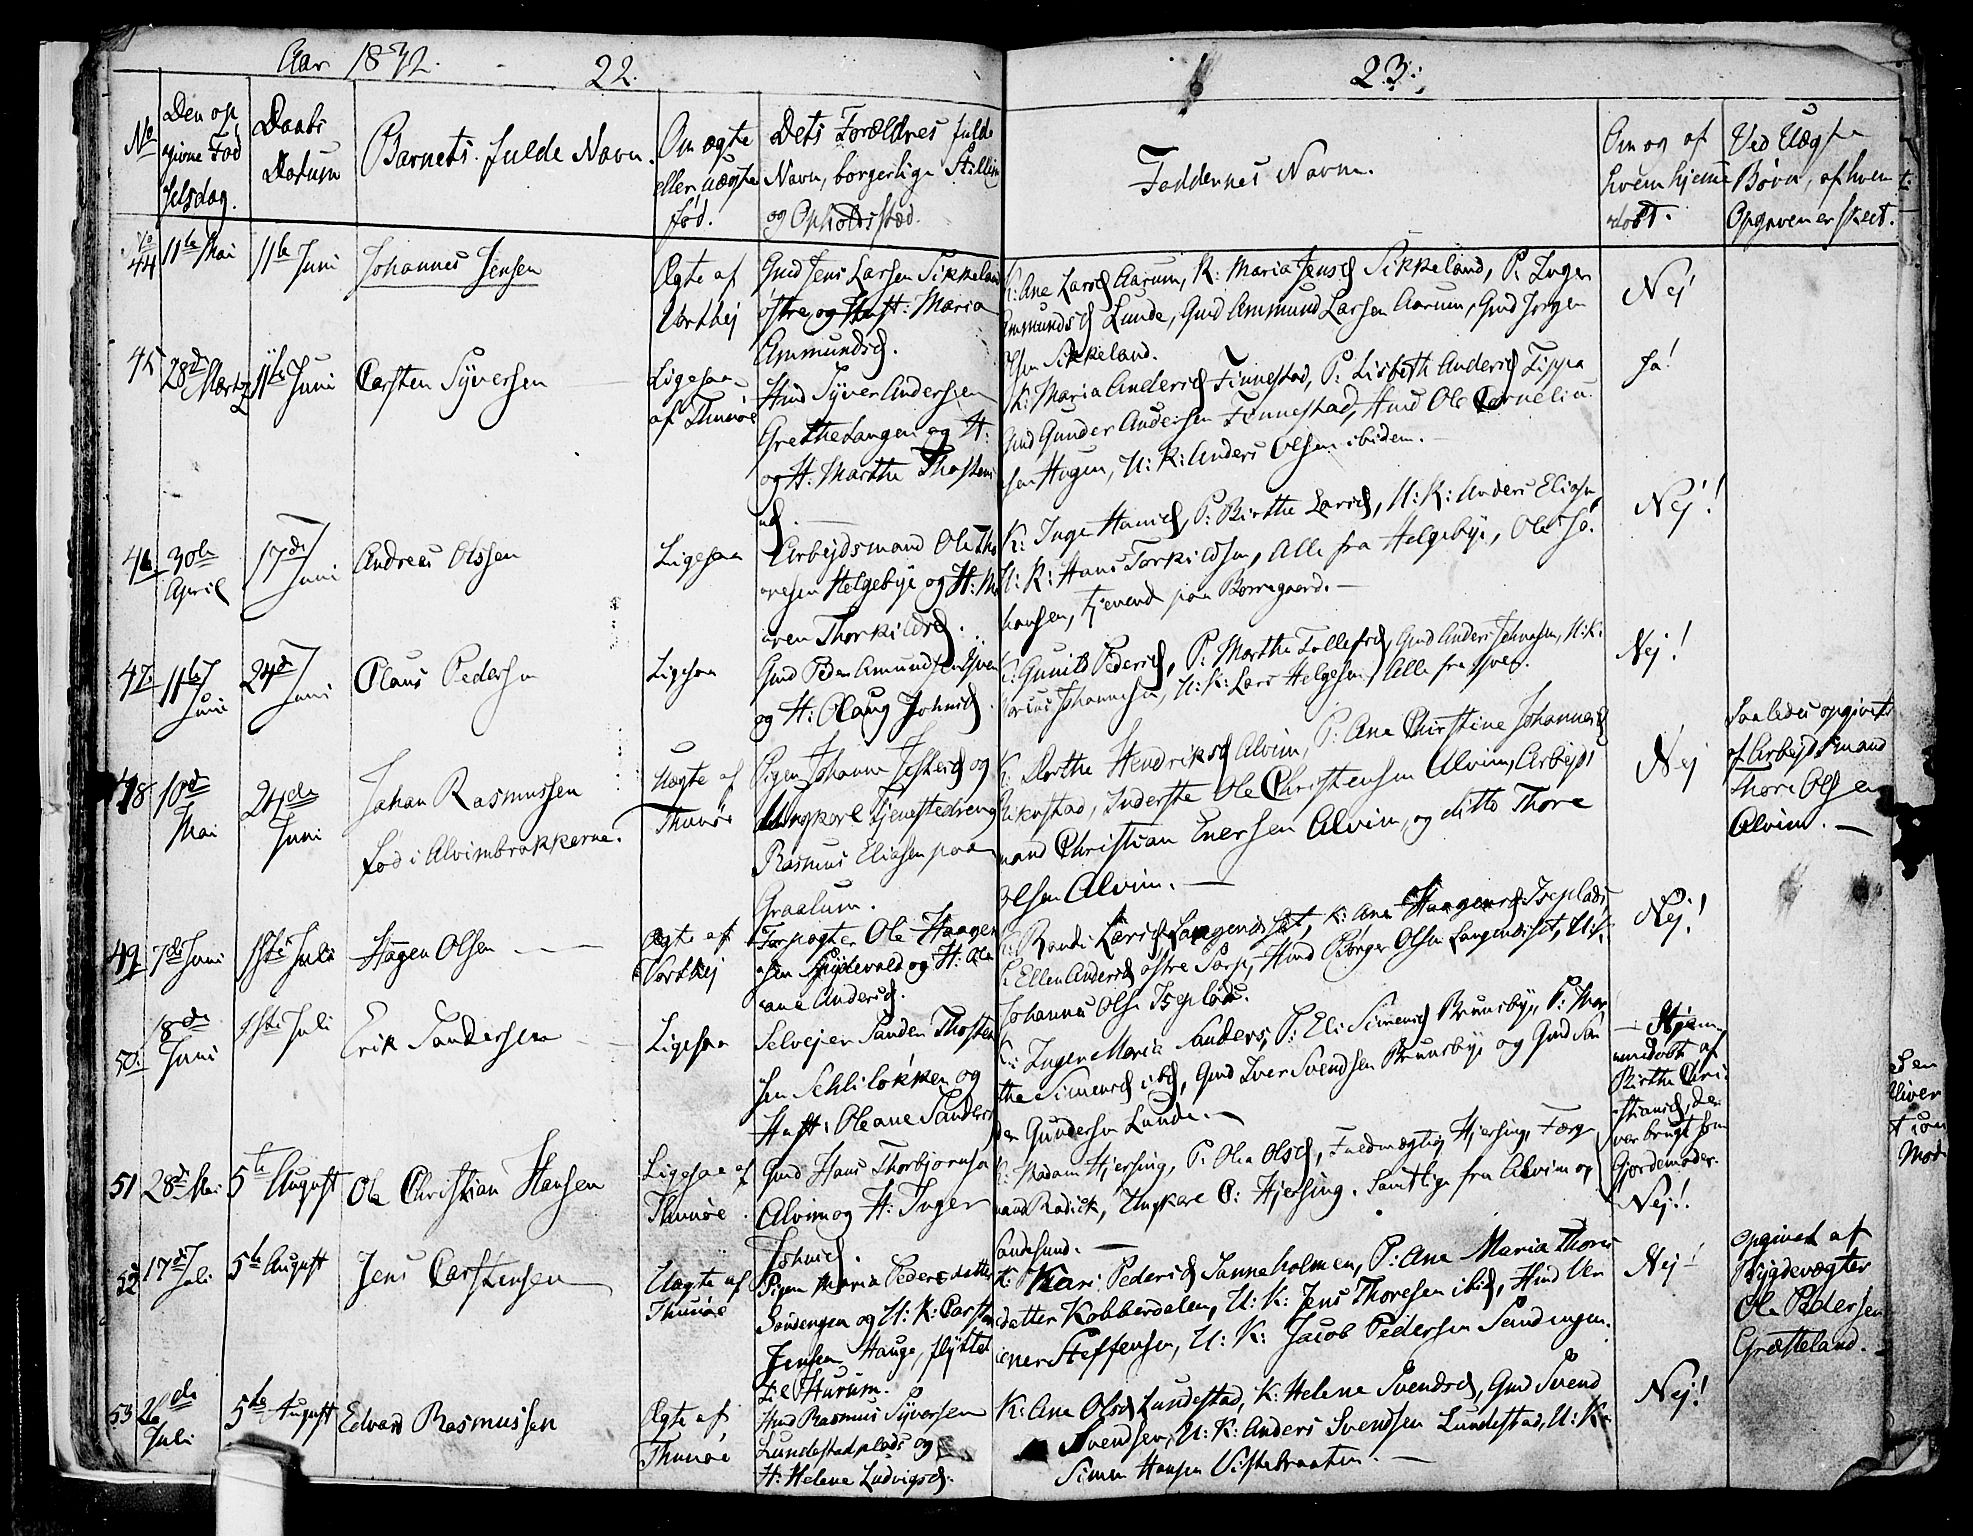 Aar 1832.
22.
23.
No
Den op
givne Fød
selsdag.
Daabs
Datum
Barnets fulde Navn.
Om ægte
eller uægte
fød.
Dets Forældres fulde
Navn, borgerlige Stilling
og Opholdssted.
Faddernes Navne.
Om og af
hvem hjemme
døbt.
Ved Uægte
Børn, af hvem
Opgaven er skeet.
No 44
11te Mai
11te Juni
Johannes Jensen
Ægte af
Vortkej
Gmd Jens Larsen Sikkeland
østre og Hust: Maria
Ammundsd.
K: Ane Larsd Aarum, K: Maria Jensd Sikkeland, P: Inger
Ammundsd Lunde, Gmd Ammund Larsen Aarum, Gmd Jørgen
Olsen Sikkeland.
Nej
45
28de Marts
11te Juni
Carsten Syversen
Ligesaa
af Thunøe
Hmd Syver Andersen
Grethelangen og H:
og H: Marthe Thostens
d.
K: Maria Andersd Finnestad, P: Lisbeth Andersd Tippa
Gmd Gunder Andersen Finnestad, Hmd Ole Corneliu
sen Hagen, U: K: Anders Olsen ibidem.
Ja!
46
30te
April
17de
Juni
Andreas Olssen
Ligesaa
Arbejdsmand Ole Tho
resen Helgebye og H: Ma
ren Thorkildsd.
K: Inge Hansd, P: Birthe Larsd, U: K: Anders Eliasen,
U: K: Hans Torkildsen, Alle fra Helgebye, Ole Jo
hansen, tjenende paa Borregaard.
Nej!
47.
11te
Juni
24de
Juni
Olaus Pedersen
Ligesaa
Gmd Peder Amundsen
og H: Olaug Johnsd.
K: Gunild Pedersd, P: Marthe Tollefsd, Gmd Anders Johnsen, U: K:
Johannesen, U: K: Lars Helgesen, Alle fra
Nej!
48
10de
Mai
24de
Juni
Johan Rasmussen
fød i Alvimbrakkerne.
Uægte af
Thunøe
Pigen Johanne og
Ungkarl Tjenestedreng
Rasmus Eliasen paa
Graalum.
K: Dorthe Hendriksd Alvim, P: Ane Christine Johannesd
Inderste Ole Christensen Alvim, Arbejds
mand Christian Enersen Alvim, og ditto Thore
Olsen Alvim.
Nej
Saaledes opgivet
af Arbejdsmand
Thore Olsen
Alvim.
49
7de Juni
1ste Juli
Hagen Olsen
Ægte af
Vortkej
Forpagter Ole Haagen
sen og H: Ole
ane Andersd.
K: Randi Larsd, K: Ane Haagensd Iseplads
P: Ellen Andersd østre Sarp, Hmd Børger Olsen U: K:
Johannes Olsen Iseplads.
Nej!
50.
18de
Juni
1ste Juli
Erik Sandersen
Ligesaa
Selvejer Sanden Thosten
sen Schliløkken og
Hust: Oleane Sandersd
K: Inger Maria Sandersd, P: Eli Simensd Brunsbye, P: Mar
the Simensd ibid, Gmd Iver Svendsen Brunsbye og Gmd San
der Gundersen Lunde.
Hjem
medøbt af
Birthe Chri
stiansd, der
var brugt som
Gjordemoder.
51
28de Mai
5te August
Ole Christian Hansen
Ligesaa af
Thunøe.
Gmd Hans Thorbjørnsen
Alvim og H: Inger
Johnsd.
K: Madam Hjersing, P: Olea Olsd, Fuldmægtig Hjersing, Færge
mand Radick, Ungkarl O: Hjersing. Samtlige fra Alvim og
Sandesund.
Nej!
52
17de
Juli
5te August
Jens Carstensen
Uægte af
Thunøe
Pigen Maria Pedersdatter
Sandengen og U: K: Carsten
Jensen Hauge, flyttet
til Hurum.
K: Kari Pedersd Sanneholmen, P: Ane Maria Thores
datter Kobberdalen, U: K: Jens Thoresen ibid, Hmd
Steffensen, U: K: Jacob Pedersen Sandengen.
Nej
Opgivet af
Bygdevægter
Ole Pedersen
Græsteland.
53
26de
Juli
5te August
Edvard Rasmussen
Ægte af
Thunøe
Hmd Rasmus Syversen
Lundestadplads og
H: Helene Ludvigsd.
K: Ane Olsd Lundestad, K: Helene Svendsd, Gmd Svend
Svendsen, U: K: Anders Svendsen Lundestad, U: K:
Simen Hansen Vistebraaten.
Nej!